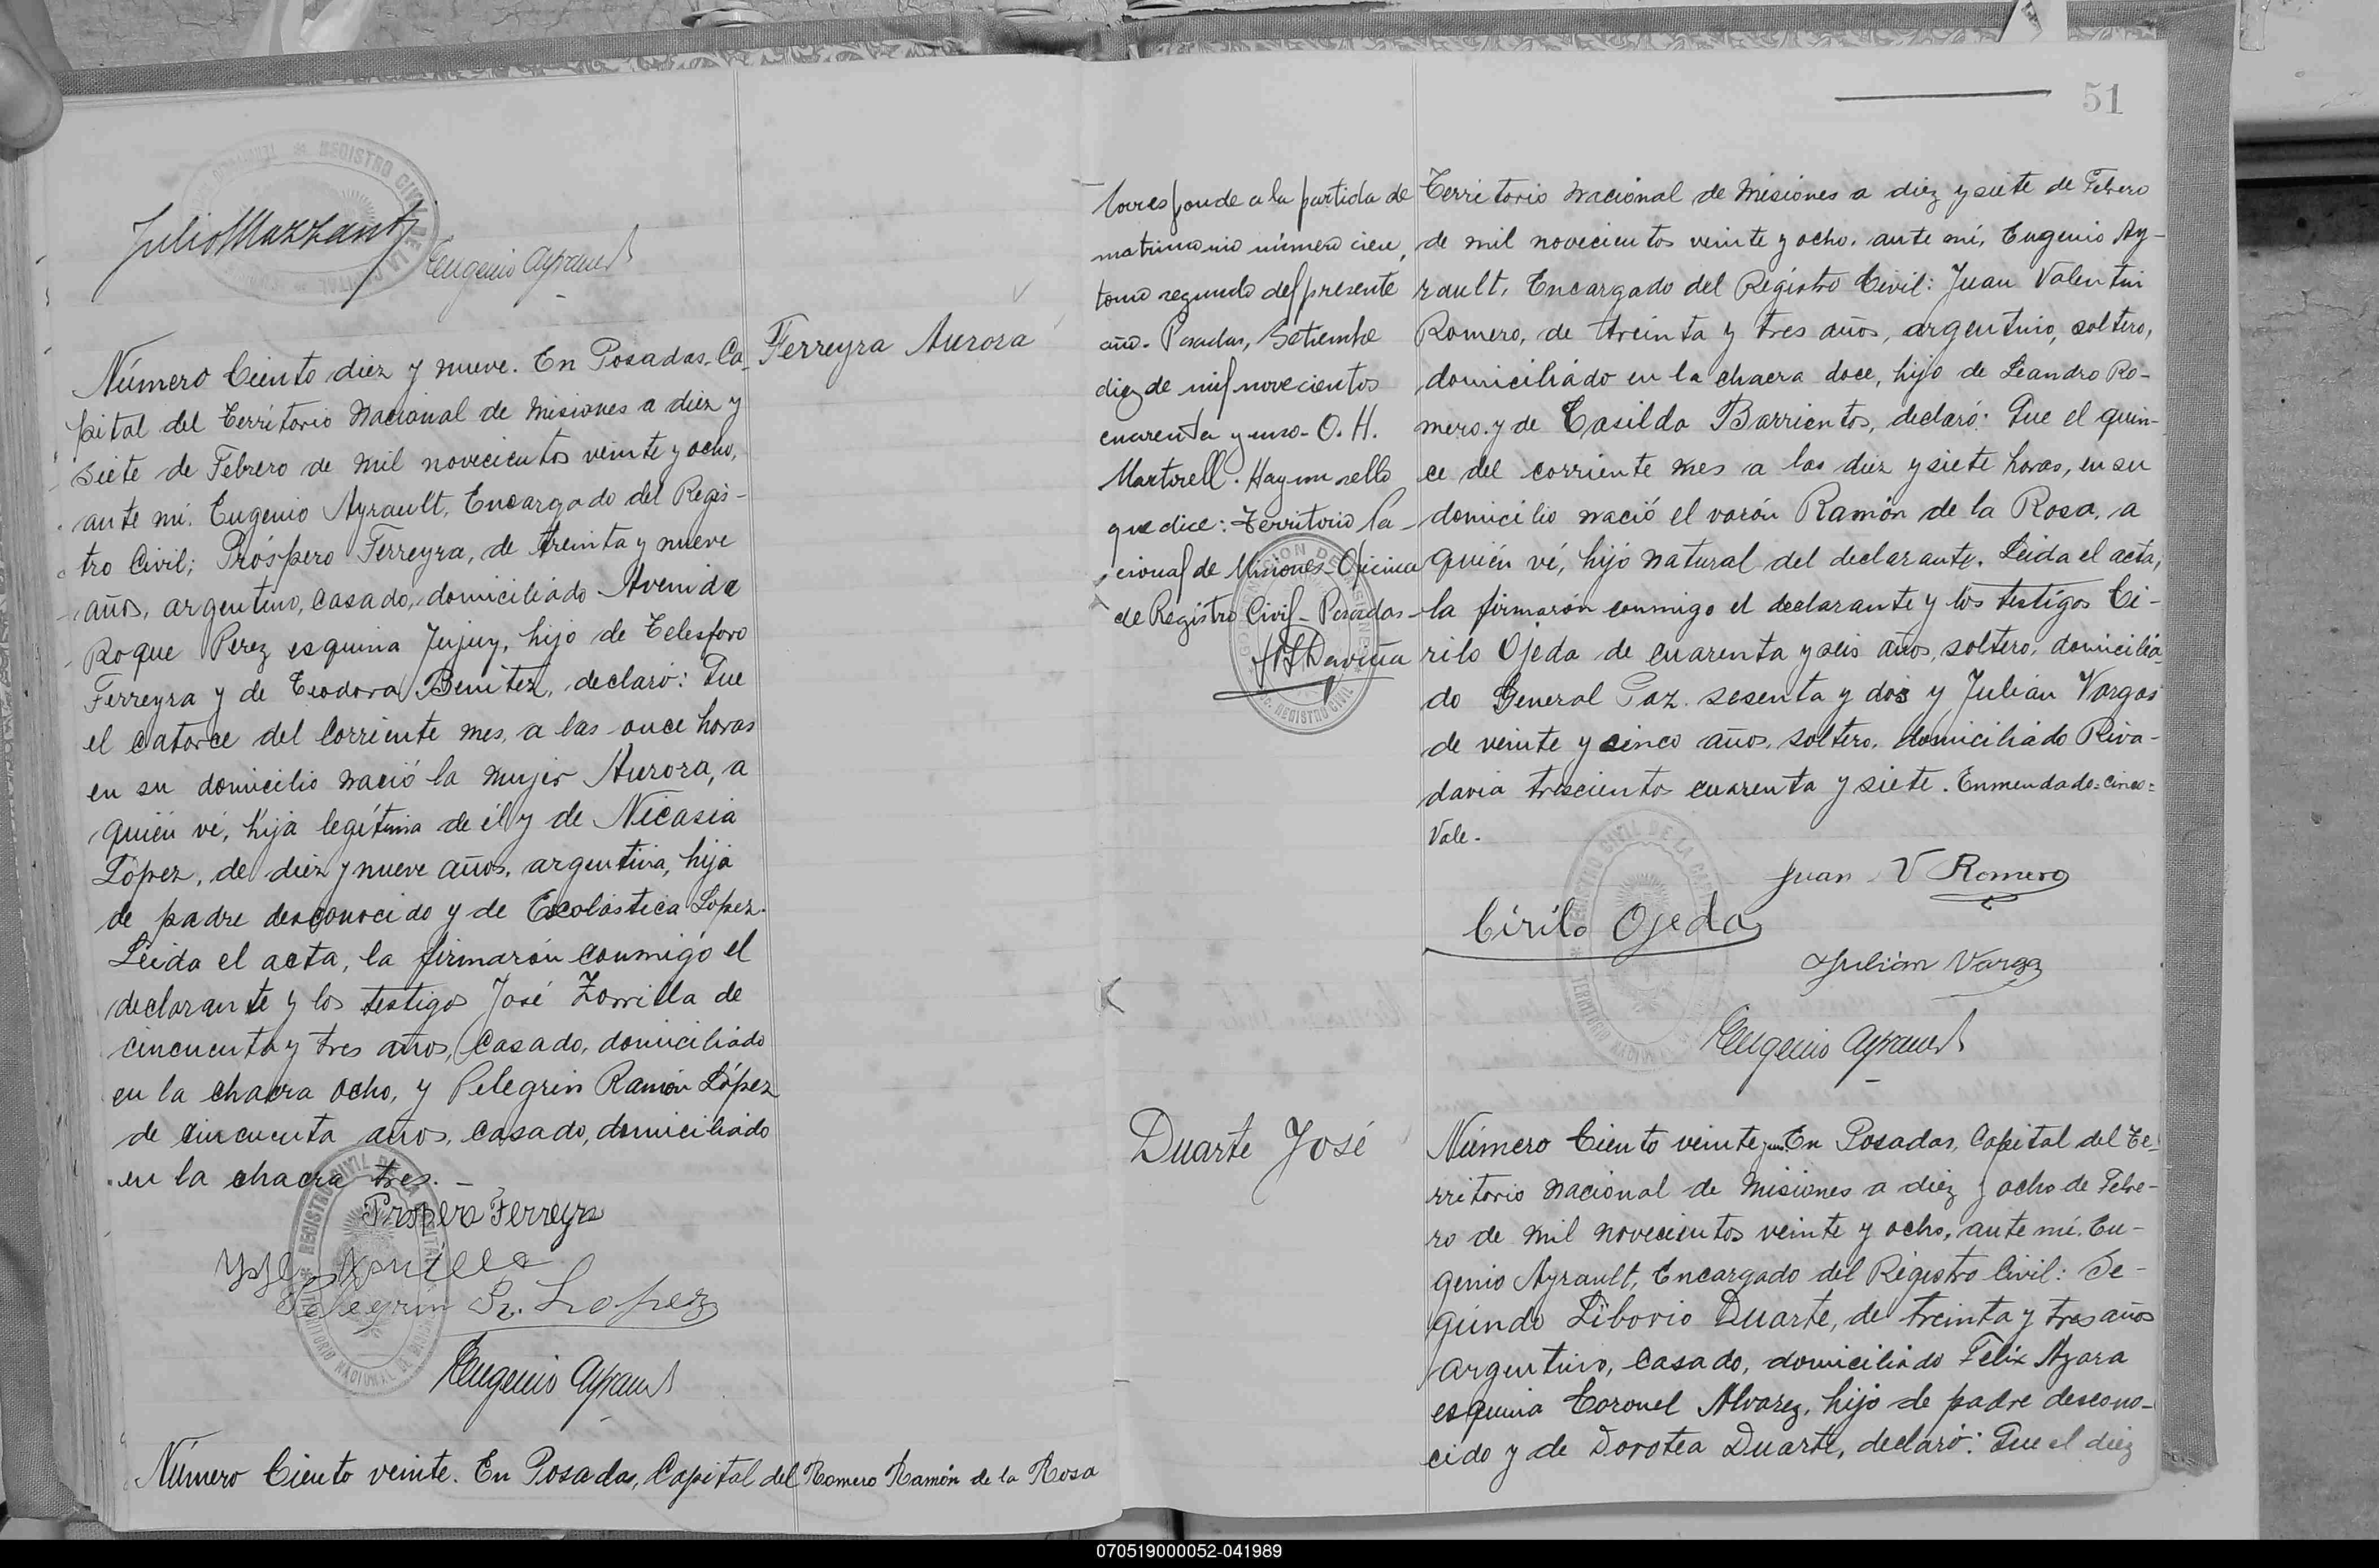 Julio Mazzanti
Eugenio Ayrault
Ferreyra Aurora
Número Ciento diez y nueve. En Posadas, Ca-
pital del Territorio Nacional de Misiones a diez y
siete de Febrero de mil novecientos veinte y ocho,
ante mí, Eugenio Ayrault, Encargado del Regis-
tro Civil; Próspero Ferreyra, de treinta y nueve
años, argentino, casado, domiciliado Avenida
Roque Perez esquina Jujuy, hijo de Telesforo
Ferreyra y de Teodora Benitez, declaró: Que
el catorce del corriente mes, a las once horas
en su domicilio nació la mujer Aurora, a
quién ví, hija legítima de él y de Nicasia
López, de diez y nueve años, argentina, hija
de padre desconocido y de Escolástica López.
Leida el acta, la firmarón conmigo el
declarante y los testigos José Zorrilla de
cincuenta y tres años, casado, domiciliado
en la chacra ocho, y Pelegrin Ramón López
de cincuenta años, casado, domiciliado
en la chacra tres. -
Prospero Ferreyra
Pelegrin R. Lopez
Eugenio Ayrault
Número Ciento veinte. En Posadas, Capital del
Romero Ramón de la Rosa
51
Corresponde a la partida de
matrimonio número cien,
tomo segundo del presente
año. Posadas, Setiembre
diez de mil novecientos
cuarenta y uno - O. H.
Martorell. Hay un sello
que dice: Territorio Na-
cional de Misiones Oficina
de Registro Civil - Posadas -
Territorio Nacional de Misiones a diez y siete de Febrero
de mil novecientos veinte y ocho, ante mí, Eugenio Ay-
rault, Encargado del Registro Civil: Juan Valentin
Romero, de treinta y tres años, argentino, soltero,
domiciliado en la chacra doce, hijo de Leandro Ro-
mero y de Casilda Barrientos, declaró: Que el quin-
ce del corriente mes a las diez y siete horas, en su
domicilio nació el varón Ramón de la Rosa, a
quién ví, hijo natural del declarante. Leida el acta,
la firmarón conmigo el declarante y los testigos Ci-
rilo Ojeda de cuarenta y seis años, soltero, domicilia-
do General Paz sesenta y dos y Julián Vargas
de veinte y cinco años, soltero, domiciliado Riva-
davia trescientos cuarenta y siete. Enmendado: cinco=
Vale.
Juan V Romero
Cirilo Ojeda
Julián Varga
Eugenio Ayrault
Duarte José
Número Ciento veinte y uno. En Posadas, Capital del Te-
rritorio Nacional de Misiones a diez y ocho de Febre-
ro de mil novecientos veinte y ocho, ante mí, Eu-
genio Ayrault, Encargado del Registro Civil: Se-
gundo Liborio Duarte, de treinta y tres años
argentino, casado, domiciliado Felix Azara
esquina Coronel Alvarez, hijo de padre descono-
cido y de Dorotea Duarte, declaró: Que el diez
070519000052-041989